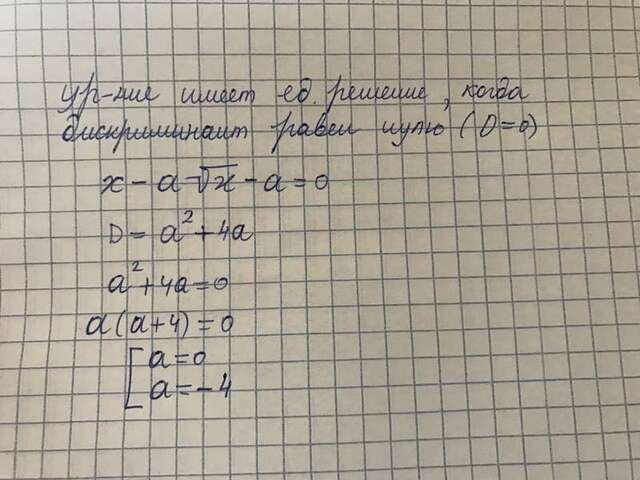 Ур-ние имеет ед. решение, когда
дискриминант равен нулю (D=0)
x - a√x - a = 0
D = a² + 4a
a² + 4a = 0
a(a+4) = 0
[ a = 0
a = -4